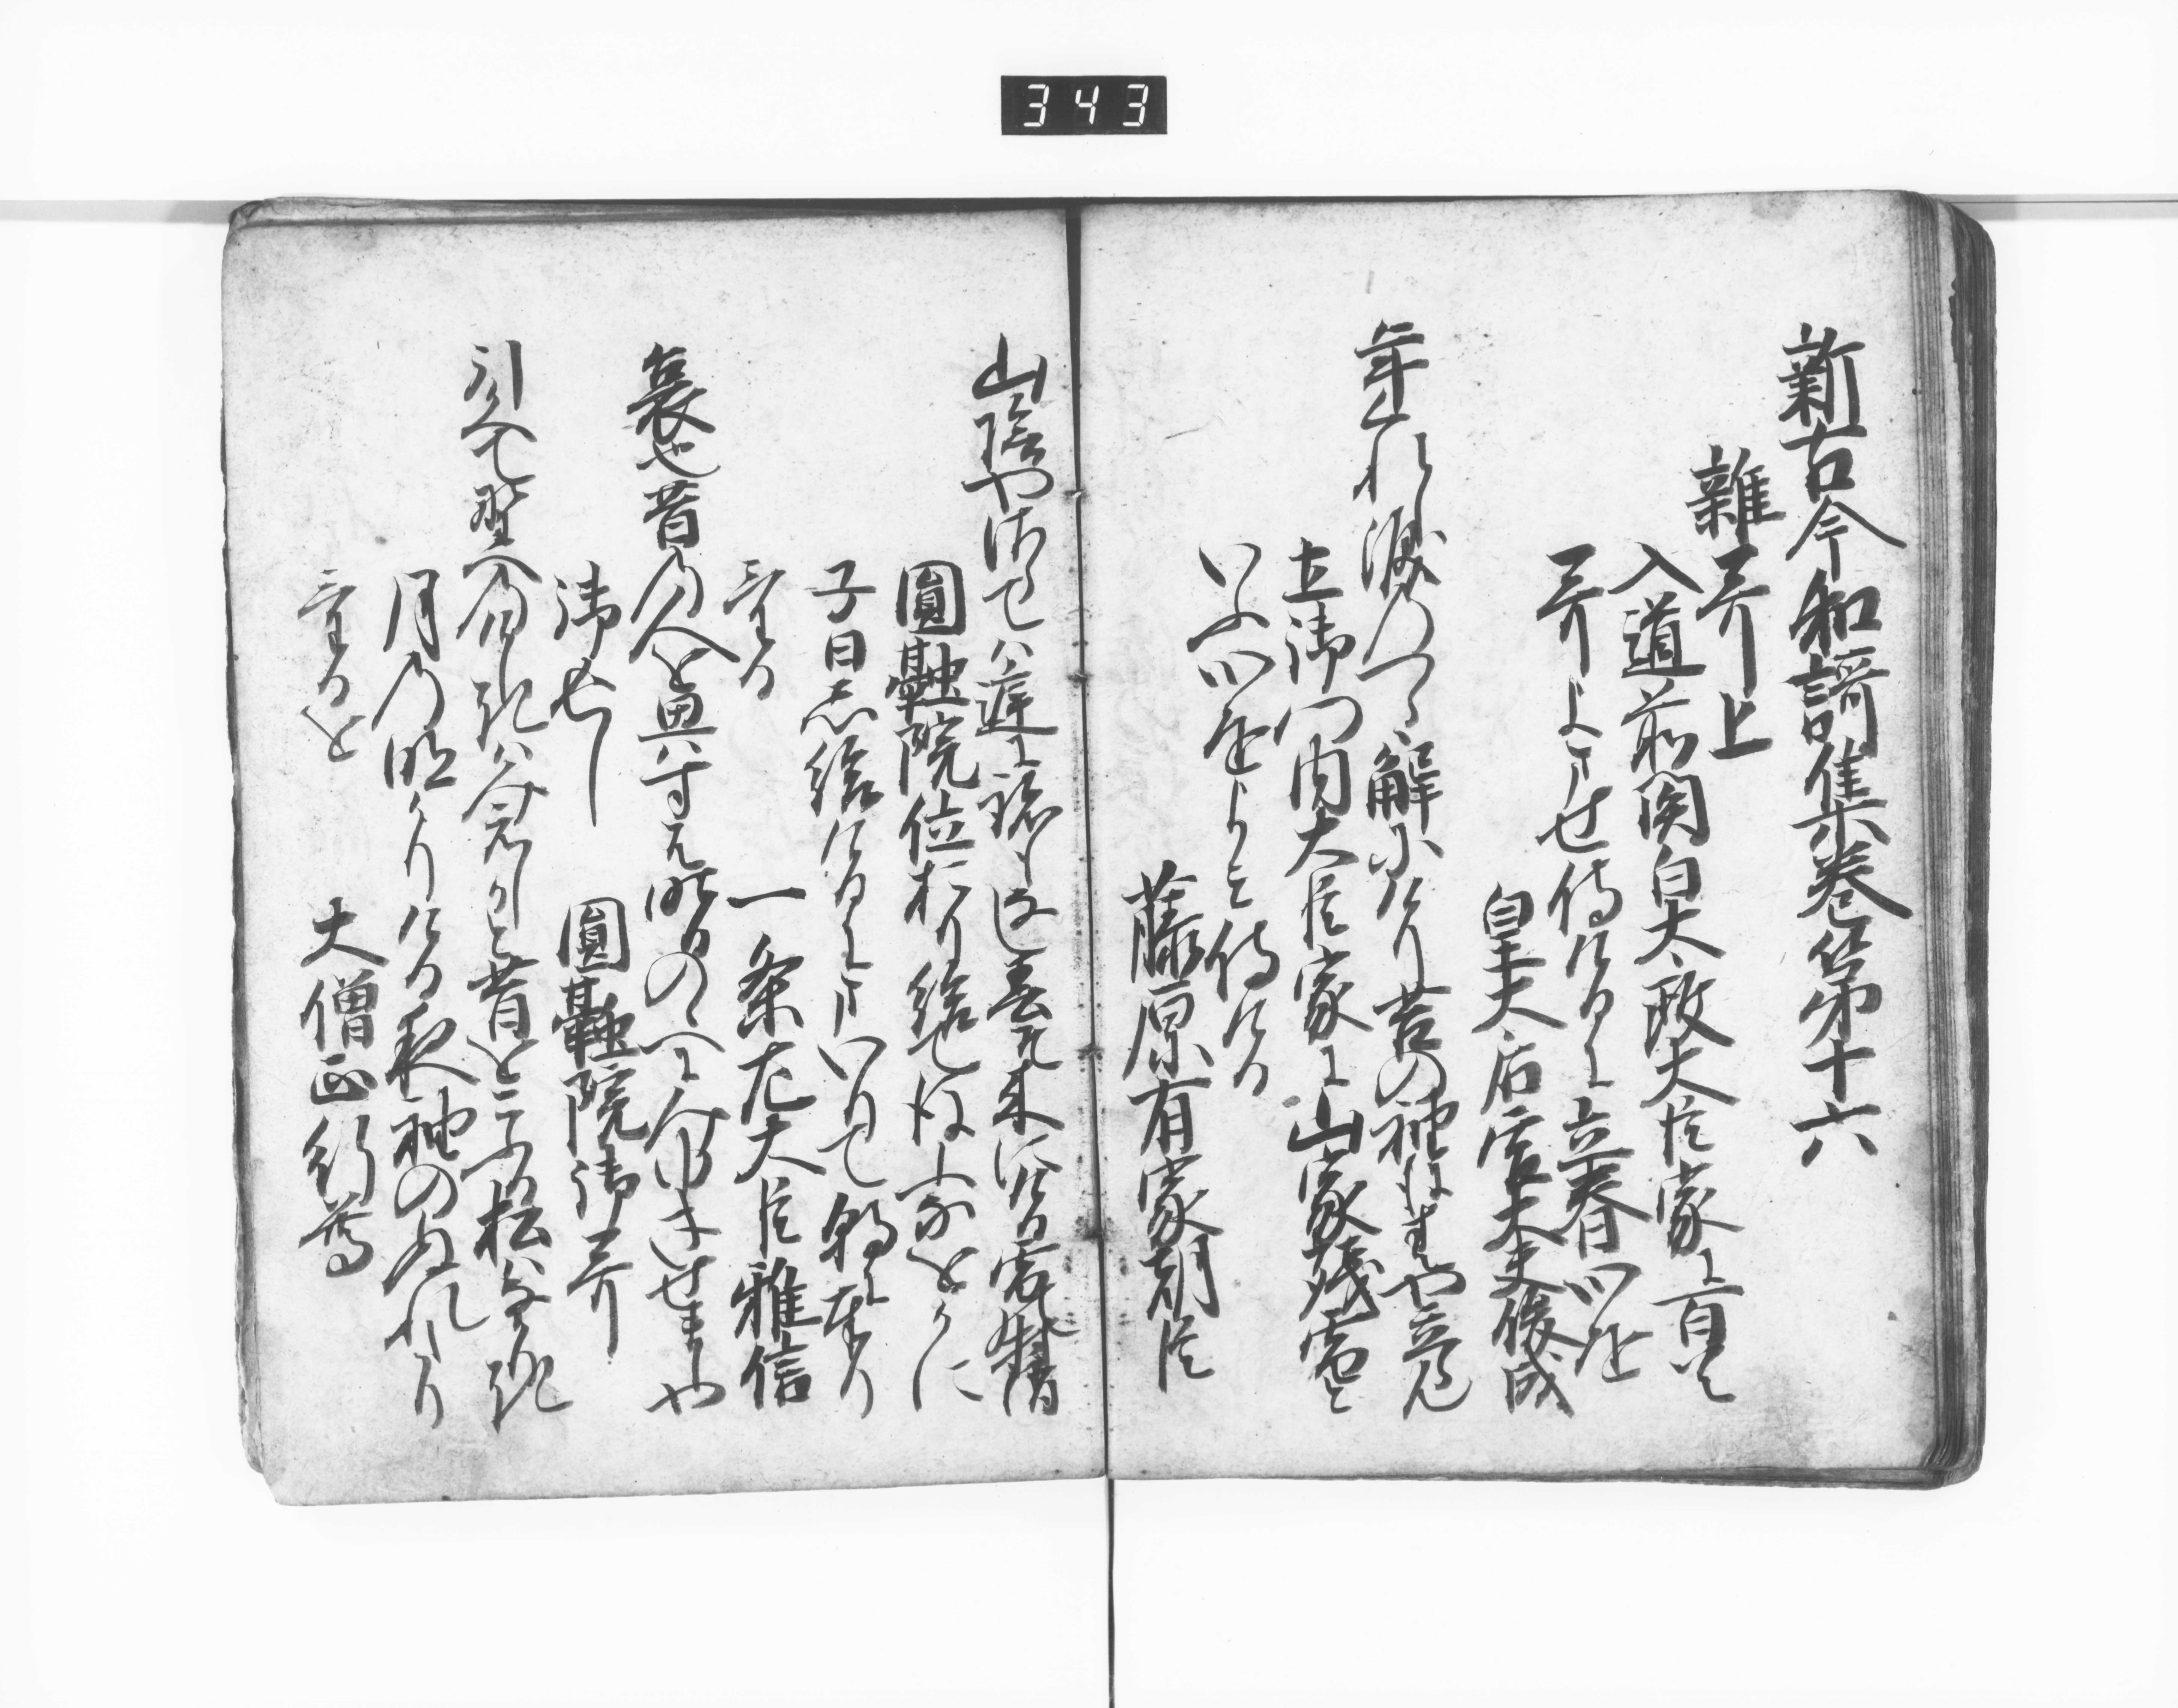 343
新古今和謌集巻第十六
雜哥上
入道前関白太政大臣家に百首
哥よませ侍けるに立春心を
皇太后宮大夫俊成
年暮れし涙のつらゝ解にけり苔の袖にも春や立らん
土御門内大臣家に山家残雪と
いふ心をよみ侍ける
藤原有家朝臣
山陰やさらては庭に跡もなし春そ来にける雪の村消
圓融院位おり給て後ふなをかに
子日志給けるにまいりて朝に奉り
ける
一条左大臣雅信
哀也昔の人を思ふにも昨日の野へにみゆきせましや
御返し
圓融院御哥
引かへて野へのけしきは見えしかと昔を恋る松はなかりき
月の明かりける夜袖のぬれたり
けるを
大僧正行尊